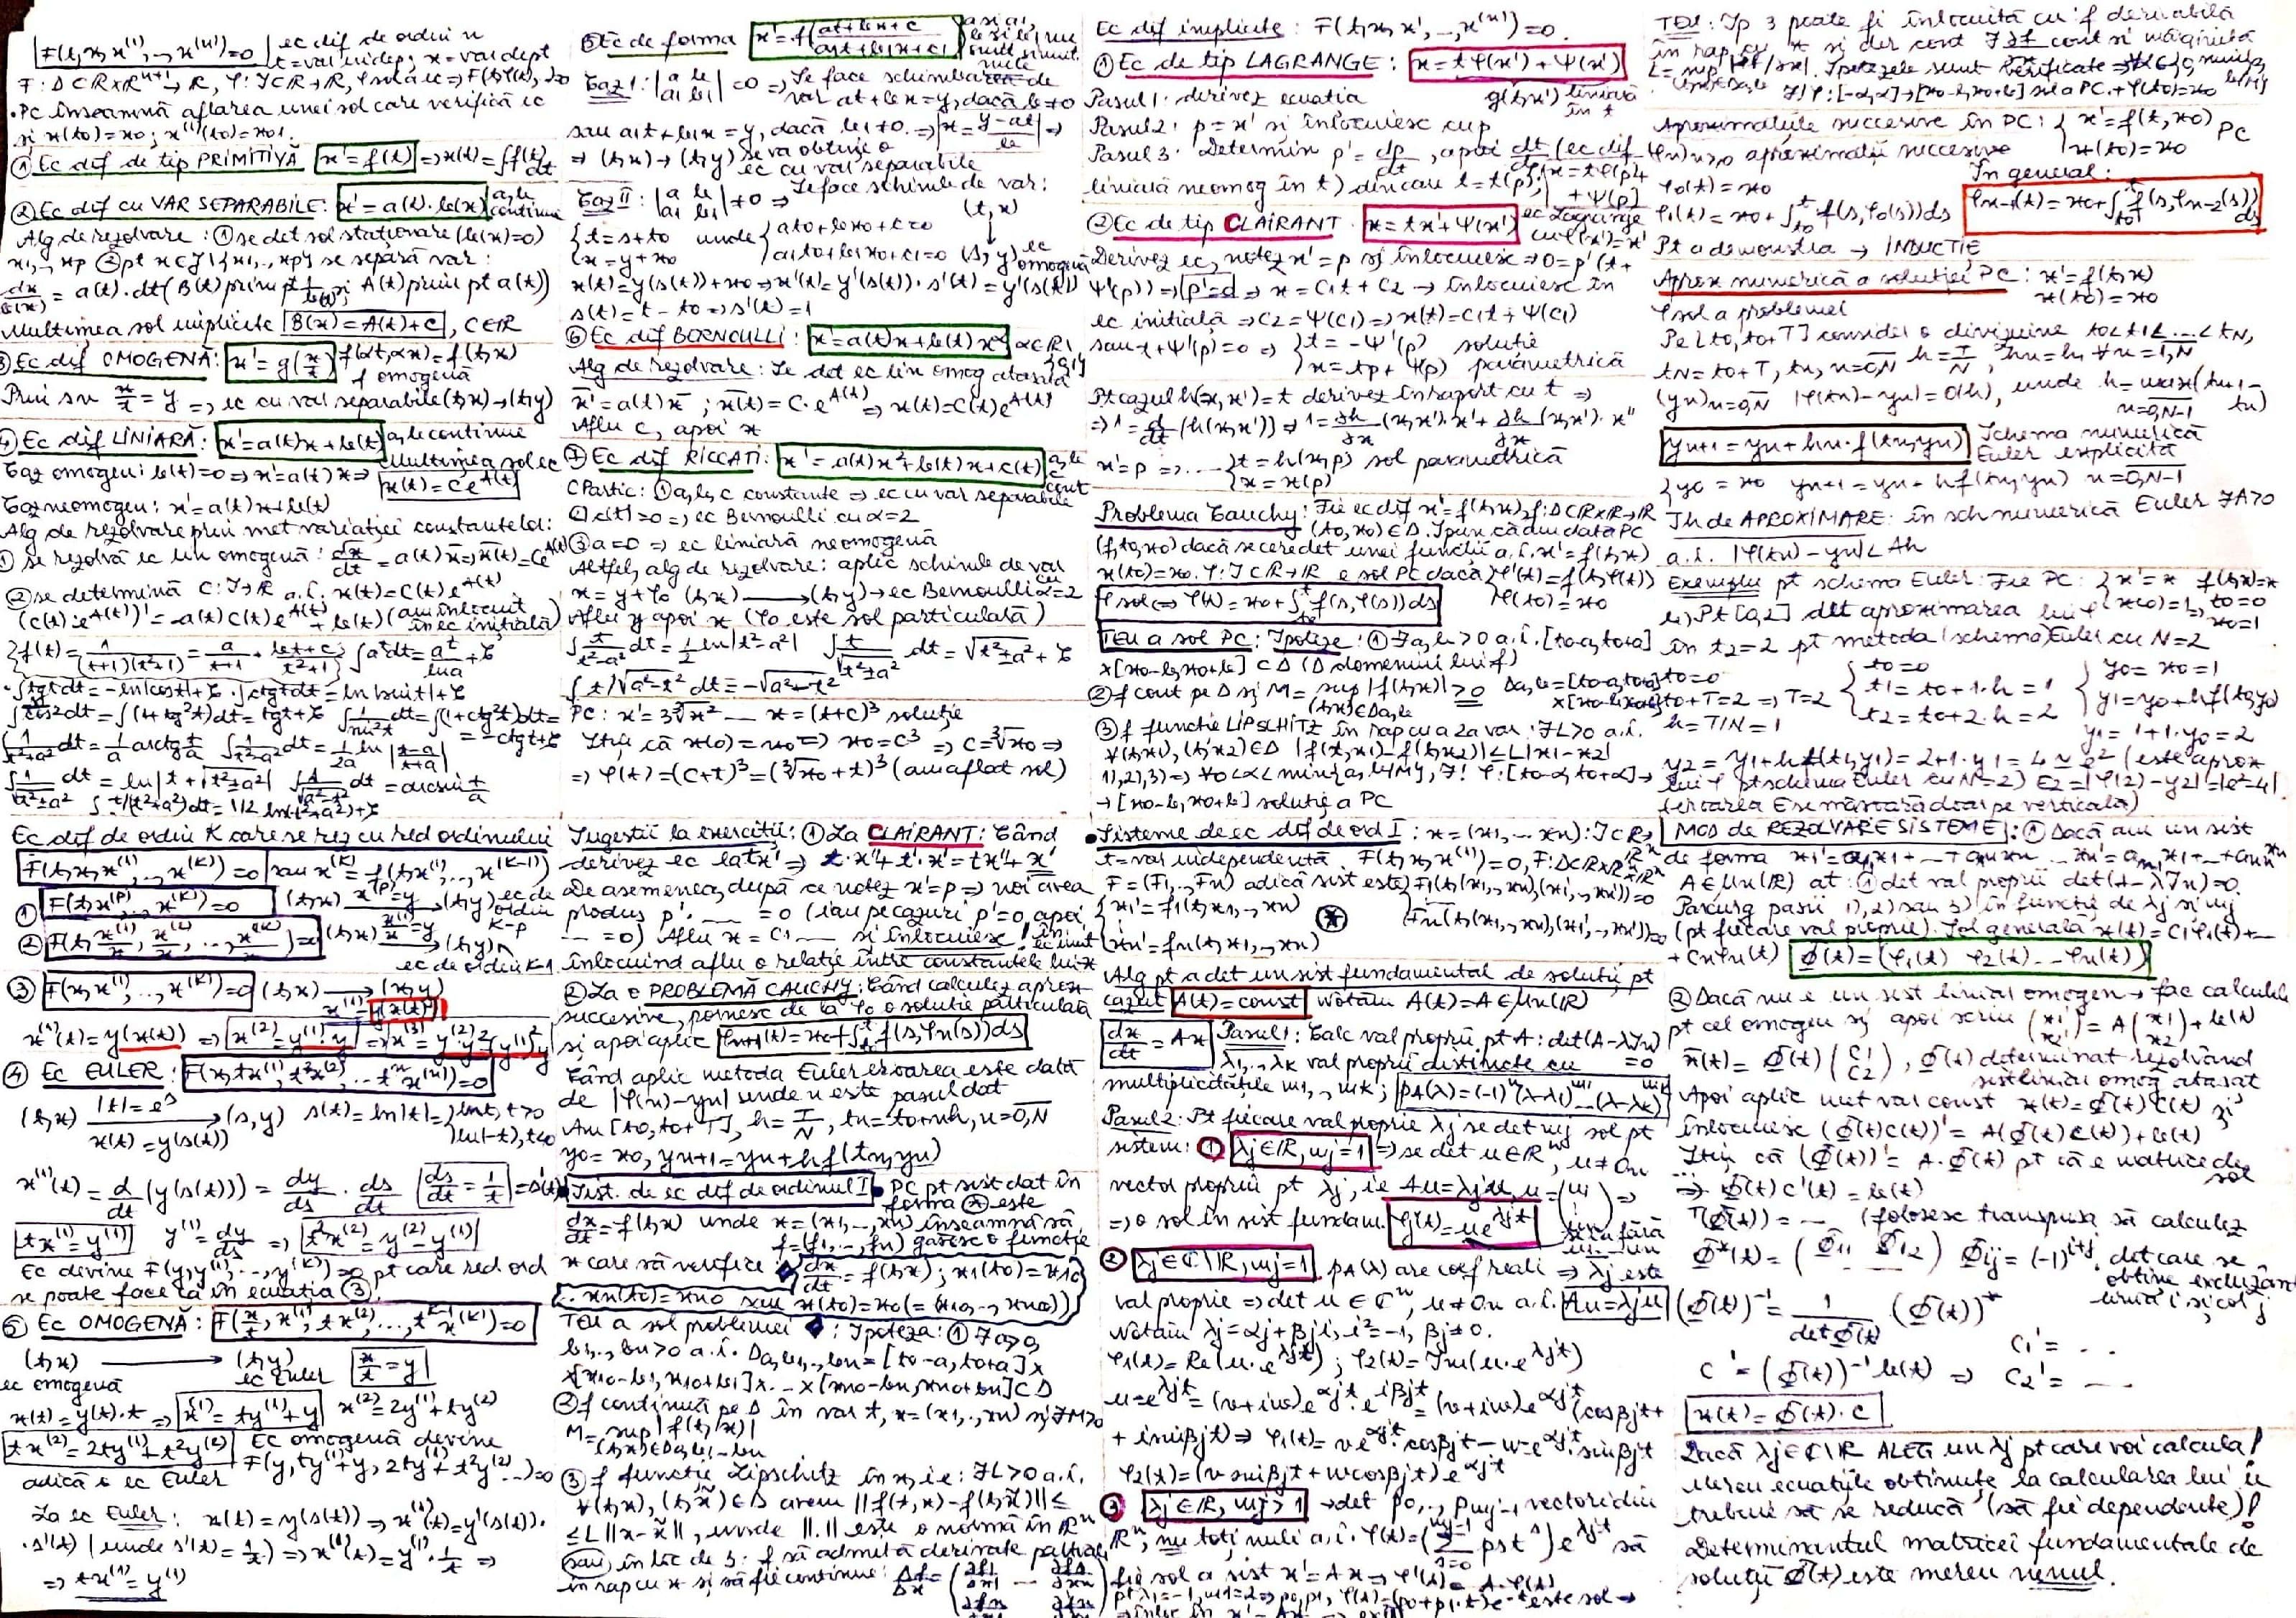 F(t,x,x⁽¹⁾,..,x⁽ⁿ⁾)=0 ec dif de ordin n
t=var indep; x=var dept
F:D⊂R×Rⁿ⁺¹→R, φ:I⊂R→R, φ sol a ec ⇒ F(t,φ(t),..)=0
·PC înseamnă aflarea unei sol care verifică ec
și x(t0)=x0; x⁽¹⁾(t0)=x01.
① Ec dif de tip PRIMITIVĂ x'=f(t) ⇒x(t)=∫f(t)dt
② Ec dif cu VAR SEPARABILE: x'=a(t)·b(x) a,b continue
Alg de rezolvare: ① se det sol staționare (b(x)=0)
x1,..,xp ② pt x∈J\{x1,..,xp} se separă var:
dx/b(x) = a(t)·dt (B(t) prim pt 1/b(x) și A(t) prim pt a(t))
Mulțimea sol implicite B(x)=A(t)+C, C∈R
③ Ec dif OMOGENĂ: x'=g(x/t) f(αt,αx)=f(t,x)
f omogenă
Prin sv x/t=y ⇒ ec cu var separabile (t,x)→(t,y)
④ Ec dif LINIARĂ: x'=a(t)x+b(t) a,b continue
Caz omogen: b(t)=0 ⇒x'=a(t)x ⇒ Mulțimea sol ec x(t)=Ce^A(t)
Caz neomogen: x'=a(t)x+b(t)
Alg de rezolvare prin met variației constantelor:
① se rezolvă ec lin omogenă: dx̄/dt = a(t)x̄⇒x̄(t)=Ce^A(t)
② se determină C:I→R a.î. x(t)=C(t)e^A(t)
(C(t)·e^A(t))'=a(t)C(t)e^A(t)+b(t) (am înlocuit în ec inițială)
f(t)=1/((t+1)(t²+1)) = a/(t+1) + (bt+c)/(t²+1); ∫aᵗdt=aᵗ/ln a+C
·∫tgt dt=-ln|cost|+C ·∫ctgt dt=ln|sint|+C
∫1/cos²t dt=∫(1+tg²t)dt=tgt+C ∫1/sin²t dt=∫(1+ctg²t)dt=
=-ctgt+C
∫1/(t²+a²)dt=1/a arctg t/a ∫1/(t²-a²)dt=1/2a ln|(t-a)/(t+a)|
∫1/√(t²±a²) dt = ln|t+√(t²±a²)| ∫1/√(a²-t²) dt=arcsin t/a
∫t/(t²+a²)dt=1/2 ln(t²+a²)+C
Ec dif de ordin K care se rez cu red ordinului
F(t,x,x⁽¹⁾,..,x⁽ᴷ⁾)=0 sau x⁽ᴷ⁾=f(t,x⁽¹⁾,..,x⁽ᴷ⁻¹⁾)
① F(t,x⁽ᵖ⁾,..,x⁽ᴷ⁾)=0 (t,x) x⁽ᵖ⁾=y → (t,y) ec de ordin K-p
② F(t,x⁽¹⁾/x,x⁽²⁾/x,..,x⁽ᴷ⁾/x)=0 (t,x) x⁽¹⁾/x=y → (t,y)
ec de ordin K-1
③ F(x,x⁽¹⁾,..,x⁽ᴷ⁾)=0 (t,x) → (x,y)
x⁽¹⁾=y(x(t))
x⁽¹⁾(t)=y(x(t)) ⇒ x⁽²⁾=y⁽¹⁾·y ⇒ x⁽³⁾=y⁽²⁾·y²+(y⁽¹⁾)²y
④ Ec EULER: F(x,tx⁽¹⁾,t²x⁽²⁾,..tⁿx⁽ⁿ⁾)=0
(t,x) |t|=eˢ → (s,y) s(t)=ln|t|= {lnt, t>0
x(t)=y(s(t)) ln(-t), t<0
x⁽¹⁾(t)=d/dt (y(s(t)))=dy/ds · ds/dt ds/dt=1/t =s'(t)
tx⁽¹⁾=y⁽¹⁾ y⁽¹⁾=dy/ds ⇒ t²x⁽²⁾=y⁽²⁾-y⁽¹⁾
Ec devine F(y,y⁽¹⁾,..,y⁽ᴷ⁾)=0 pt care red ord
se poate face ca în ecuația ③.
⑤ Ec OMOGENĂ: F(x/t,x⁽¹⁾,tx⁽²⁾,..,tᴷ⁻¹x⁽ᴷ⁾)=0
(t,x) → (t,y) x/t=y
ec omogenă ec Euler
x(t)=y(t)·t ⇒ x⁽¹⁾=ty⁽¹⁾+y x⁽²⁾=2y⁽¹⁾+ty⁽²⁾
tx⁽²⁾=2ty⁽¹⁾+t²y⁽²⁾ Ec omogenă devine
adică o ec Euler F(y,ty⁽¹⁾+y,2ty⁽¹⁾+t²y⁽²⁾..)=0
La ec Euler: x(t)=y(s(t)) ⇒ x⁽¹⁾(t)=y'(s(t))·
·s'(t) (unde s'(t)=1/t) ⇒x⁽¹⁾(t)=y⁽¹⁾·1/t ⇒
⇒ tx⁽¹⁾=y⁽¹⁾
⑤ Ec de forma x'=f((at+bx+c)/(a1t+b1x+c1)) a și a1, b și b1, nu sunt simult. nule
Caz 1: |a b a1 b1|=0 ⇒ Se face schimbarea de
var at+bx=y, dacă b≠0
sau a1t+b1x=y, dacă b1≠0. ⇒ x=(y-at)/b ⇒
⇒ (t,x)→(t,y) se va obține o
ec cu var separabile
Caz II: |a b a1 b1|≠0 ⇒ Se face schimb de var:
{t=s+t0 x=y+x0 unde {at0+bx0+c=0 a1t0+b1x0+c1=0 (t,x) ↓ (s,y) ec omogenă
x(t)=y(s(t))+x0⇒x'(t)=y'(s(t))·s'(t)=y'(s(t))
s(t)=t-t0⇒s'(t)=1
⑥ Ec dif BERNOULLI: x'=a(t)x+b(t)x^α α∈R\{0,1}
Alg de rezolvare: Se det ec lin omog atașată
x̄'=a(t)x̄; x̄(t)=C·e^A(t) ⇒ x(t)=C(t)e^A(t)
Aflu C, apoi x
⑦ Ec dif RICCATI: x'=a(t)x²+b(t)x+c(t) a,b,c cont
C Partic: ① a,b,c constante ⇒ ec cu var separabile
② c(t)=0 ⇒ ec Bernoulli cu α=2
③ a=0 ⇒ ec liniară neomogenă
Altfel, alg de rezolvare: aplic schimb de var
x=y+φ0 (t,x) → (t,y)→ec Bernoulli cu α=2
Aflu y apoi x (φ0 este sol particulară)
∫t/(t²-a²)dt=1/2 ln|t²-a²| ∫t/√(t²±a²) dt=√(t²±a²)+C
∫t/√(a²-t²) dt=-√(a²-t²)
PC: x'=3∛x² — x=(t+c)³ soluție
Știu că x(0)=x0⇒ x0=c³ ⇒ c=∛x0 ⇒
⇒ φ(t)=(c+t)³=(∛x0+t)³ (am aflat sol)
Sugestii la exerciții: ① La CLAIRANT: Când
derivez ec la tx' ⇒ t·x''+t'·x'=tx''+x'
De asemenea, după ce notez x'=p ⇒ voi avea
produs p'·__=0 (iau pe cazuri p'=0, apoi
__=0) Aflu x=c1__ și înlocuiesc! în ec init
Înlocuind aflu o relație între constantele lui x
② La o PROBLEMĂ CAUCHY: Când calculez aprox
succesive, pornesc de la φ0 o soluție particulară
și apoi aplic φn+1(t)=x0+∫f(s,φn(s))ds
Când aplic metoda Euler eroarea este dată
de |φ(n)-yn| unde n este pasul dat
Am [t0,t0+T], h=T/N, tn=t0+nh, n=0,N
y0=x0, yn+1=yn+hf(tn,yn)
Sist. de ec dif de ordinul I PC pt sist dat în
forma ⊛ este
dx/dt=f(t,x) unde x=(x1,..,xn) înseamnă să
f=(f1,..,fn) găsesc o funcție
x care să verifice: dx/dt=f(t,x); x1(t0)=x10
..xn(t0)=xn0 sau x(t0)=x0(=(x10,..,xn0))
TEU a sol problemei ◆: Ipoteza: ① ∃a>0,
b1,..,bn>0 a.î. Da,b1,..,bn=[t0-a,t0+a]×
×[x10-b1,x10+b1]×..×[xn0-bn,xn0+bn]⊂D
② f continuă pe D în var t, x=(x1,..,xn) și ∃M≥0
M=sup|f(t,x)|
(t,x)∈Da,b1..bn
③ f funcție Lipschitz în x, i.e: ∃L>0 a.î.
∀(t,x),(t,x̃)∈D avem ||f(t,x)-f(t,x̃)||≤
≤L||x-x̃||, unde ||.|| este o normă în Rⁿ
sau în loc de 3: f să admită derivate parțiale
în rap cu x și să fie continue: Δf/Δx=(∂f1/∂x1 ... ∂f1/∂xn
Ec dif implicite: F(t,x,x',..,x⁽ⁿ⁾)=0.
① Ec de tip LAGRANGE: x=tφ(x')+ψ(x')
Pasul1: derivez ecuația g(t,x') liniară în t
Pasul2: p=x' și înlocuiesc cu p
Pasul 3: Determin p'=dp/dt, apoi dt/dp (ec dif
liniară neomog în t) din care t=t(p); {x=tφ(p)+ψ(p)
② Ec de tip CLAIRANT x=tx'+ψ(x') ec Lagrange cu φ(x')=x'
Derivez ec, notez x'=p și înlocuiesc ⇒0=p'(t+
ψ'(p)) ⇒ p'=0 ⇒ x=c1t+c2 → înlocuiesc în
ec inițială ⇒c2=ψ(c1)⇒x(t)=c1t+ψ(c1)
sau t+ψ'(p)=0 ⇒ {t=-ψ'(p) soluție
x=tp+ψ(p) parametrică
Pt cazul h(x,x')=t derivez în raport cu t ⇒
⇒1=d/dt(h(x,x')) ⇒ 1=∂h/∂x(x,x')·x'+∂h/∂x(x,x')·x''
x'=p ⇒... {t=h(x,p) sol parametrică
x=x(p)
Problema Cauchy: Fie ec dif x'=f(t,x), f:D⊂R×R→R
(t0,x0)∈D. Spun că am dată PC
(f,t0,x0) dacă se cere det unei funcții a.î. x'=f(t,x)
x(t0)=x0. φ:I⊂R→R e sol PC dacă {φ'(t)=f(t,φ(t))
φ(t0)=x0
φ sol ⇔ φ(t)=x0+∫f(s,φ(s))ds
TEU a sol PC: Ipoteze: ① ∃a,b>0 a.î. [t0-a,t0+a]
×[x0-b,x0+b]⊂D (D domeniul lui f)
② f cont pe D și M=sup|f(t,x)|≥0 Da,b=[t0-a,t0+a]
(t,x)∈Da,b ×[x0-b,x0+b]
③ f funcție LIPSCHITZ în rap cu a 2a var: ∃L>0 a.î.
∀(t,x1),(t,x2)∈D |f(t,x1)-f(t,x2)|≤L|x1-x2|
1),2),3)⇒ ∀0<α<min{a,b/M}, ∃! φ:[t0-α,t0+α]→
→[x0-b,x0+b] soluție a PC
Sisteme de ec dif de ord I: x=(x1,..xn):I⊂R→Rⁿ
t=var independentă. F(t,x,x⁽¹⁾)=0, F:D⊂R×Rⁿ×Rⁿ→Rⁿ
F=(F1,..,Fn) adică sist este {F1(t,(x1,..,xn),(x1',..,xn'))=0
{x1'=f1(t,x1,..,xn) ⊛ Fn(t,(x1,..,xn),(x1',..,xn'))=0
xn'=fn(t,x1,..,xn)
Alg pt a det un sist fundamental de soluții pt
cazul A(t)=const Notăm A(t)=A∈Mn(R)
dx/dt=Ax Pasul1: Calc val proprii pt A: det(A-λIn)=0
λ1,..,λK val proprii distincte cu
multiplicitățile m1,..,mK; pA(λ)=(-1)ⁿ(λ-λ1)^m1...(λ-λK)^mK
Pasul2: Pt fiecare val proprie λj se det mj sol pt
sistem: ① λj∈R, mj=1 ⇒se det u∈Rⁿ, u≠0n
vector propriu pt λj, ie Au=λju, u=(u1 ⋮ un) ⇒
⇒o sol în sist fundam. φj(t)=ue^λjt
② λj∈C\R, mj=1 pA(λ) are coef reali ⇒ λj este
val proprie ⇒det u∈Cⁿ, u≠0n a.î. Au=λju
Notăm λj=αj+βji, i²=-1, βj≠0.
φ1(t)=Re(u·e^λjt); φ2(t)=Im(u·e^λjt)
u=e^λjt=(v+iw)e^αjt·e^iβjt=(v+iw)e^αjt(cosβjt+
+isinβjt)⇒ φ1(t)=ve^αjt·cosβjt-we^αjt·sinβjt
φ2(t)=(vsinβjt+wcosβjt)e^αjt
③ λj∈R, mj>1 →det p0,..,pmj-1 vectori din
Rⁿ, nu toți nuli a.î. φ(t)=(Σ pstˢ)e^λjt să
fie sol a sist x'=Ax ⇒ φ'(t)=A·φ(t)
pt λ1=-1, m1=2⇒p0,p1, φ(t)=(p0+p1·t)e⁻ᵗ este sol →
TEU: Ip 3 poate fi înlocuită cu: f derivabilă
în rap cu x și der cont ∃∂f/∂x cont și mărginită
L=sup|∂f/∂x|. Ipotezele sunt verificate ⇒∀α∈(0,min{a,b/M})
∃!φ:[-α,α]→[x0-b,x0+b] sol a PC.+φ(t0)=x0
Aproximațiile succesive în PC: {x'=f(t,x) PC
x(t0)=x0
(φn)n≥0 aproximații succesive
φ0(t)=x0 În general:
φ1(t)=x0+∫f(s,φ0(s))ds φn-1(t)=x0+∫f(s,φn-2(s))ds
Pt a demonstra → INDUCȚIE
Aprox numerică a soluției PC: x'=f(t,x)
x(t0)=x0
φ sol a problemei
Pe [t0,t0+T] consider o diviziune t0<t1<...<tN,
tN=t0+T, tn, n=0,N h=T/N, hn=h, ∀n=1,N
(yn)n=0,N |φ(tn)-yn|=O(h), unde h=max(tn+1-tn)
n=0,N-1
yn+1=yn+hn·f(tn,yn) Schema numerică
Euler explicită
{y0=x0 yn+1=yn+hf(tn,yn) n=0,N-1
Th de APROXIMARE: în sch numerică Euler ∃A>0
a.î. |φ(tn)-yn|<Ah
Exemplu pt schema Euler: Fie PC: {x'=x f(t,x)=x
x(0)=1, t0=0 x0=1
b) Pt [0,2] det aproximarea lui φ
în t2=2 pt metoda (schema) Euler cu N=2
t0=0 {t0=0 {y0=x0=1
t0+T=2⇒T=2 t1=t0+1·h=1 y1=y0+hf(t0,y0)
h=T/N=1 t2=t0+2·h=2 y1=1+1·y0=2
y2=y1+hf(t1,y1)=2+1·y1=4≈e² (este aprox
lui φ pt schema Euler cu N=2) E2=|φ(2)-y2|=|e²-4|
(eroarea E se măsoară doar pe verticală)
MOD de REZOLVARE SISTEME: ① Dacă am un sist
de forma x1'=a11x1+..+a1nxn ..xn'=an1x1+..+annxn
A∈Mn(R) at: ① det val proprii det(A-λIn)=0.
Parcurg pașii 1),2) sau 3) în funcție de λj și mj
(pt fiecare val proprie). Sol generală x(t)=c1φ1(t)+..
+cnφn(t) Φ(t)=(φ1(t) φ2(t)...φn(t))
② Dacă nu e un sist liniar omogen → fac calculele
pt cel omogen și apoi scriu (x1' x2')=A(x1 x2)+b(t)
x̄(t)=Φ(t)(c1 c2), Φ(t) determinat rezolvând
sist liniar omog atașat
Apoi aplic met var const x(t)=Φ(t)C(t) și
înlocuiesc (Φ(t)C(t))'=A(Φ(t)C(t))+b(t)
Știu că (Φ(t))'=A·Φ(t) pt că e matrice de sol
⇒ Φ(t)C'(t)=b(t)
T(Φ(t))=... (folosesc transpusa să calculez
Φ*(t)=(Φ11 Φ12) Φij=(-1)^i+j·det care se
obține excluzând
linia i și col j
(Φ(t))⁻¹=1/detΦ(t) (Φ(t))*
C'=(Φ(t))⁻¹b(t) ⇒ c1'=... c2'=...
x(t)=Φ(t)·C
Dacă λj∈C\R ALEG un λj pt care voi calcula!
Mereu ecuațiile obținute la calcularea lui u
trebuie să se reducă (să fie dependente)!
Determinantul matricei fundamentale de
soluții Φ(t) este mereu nenul.